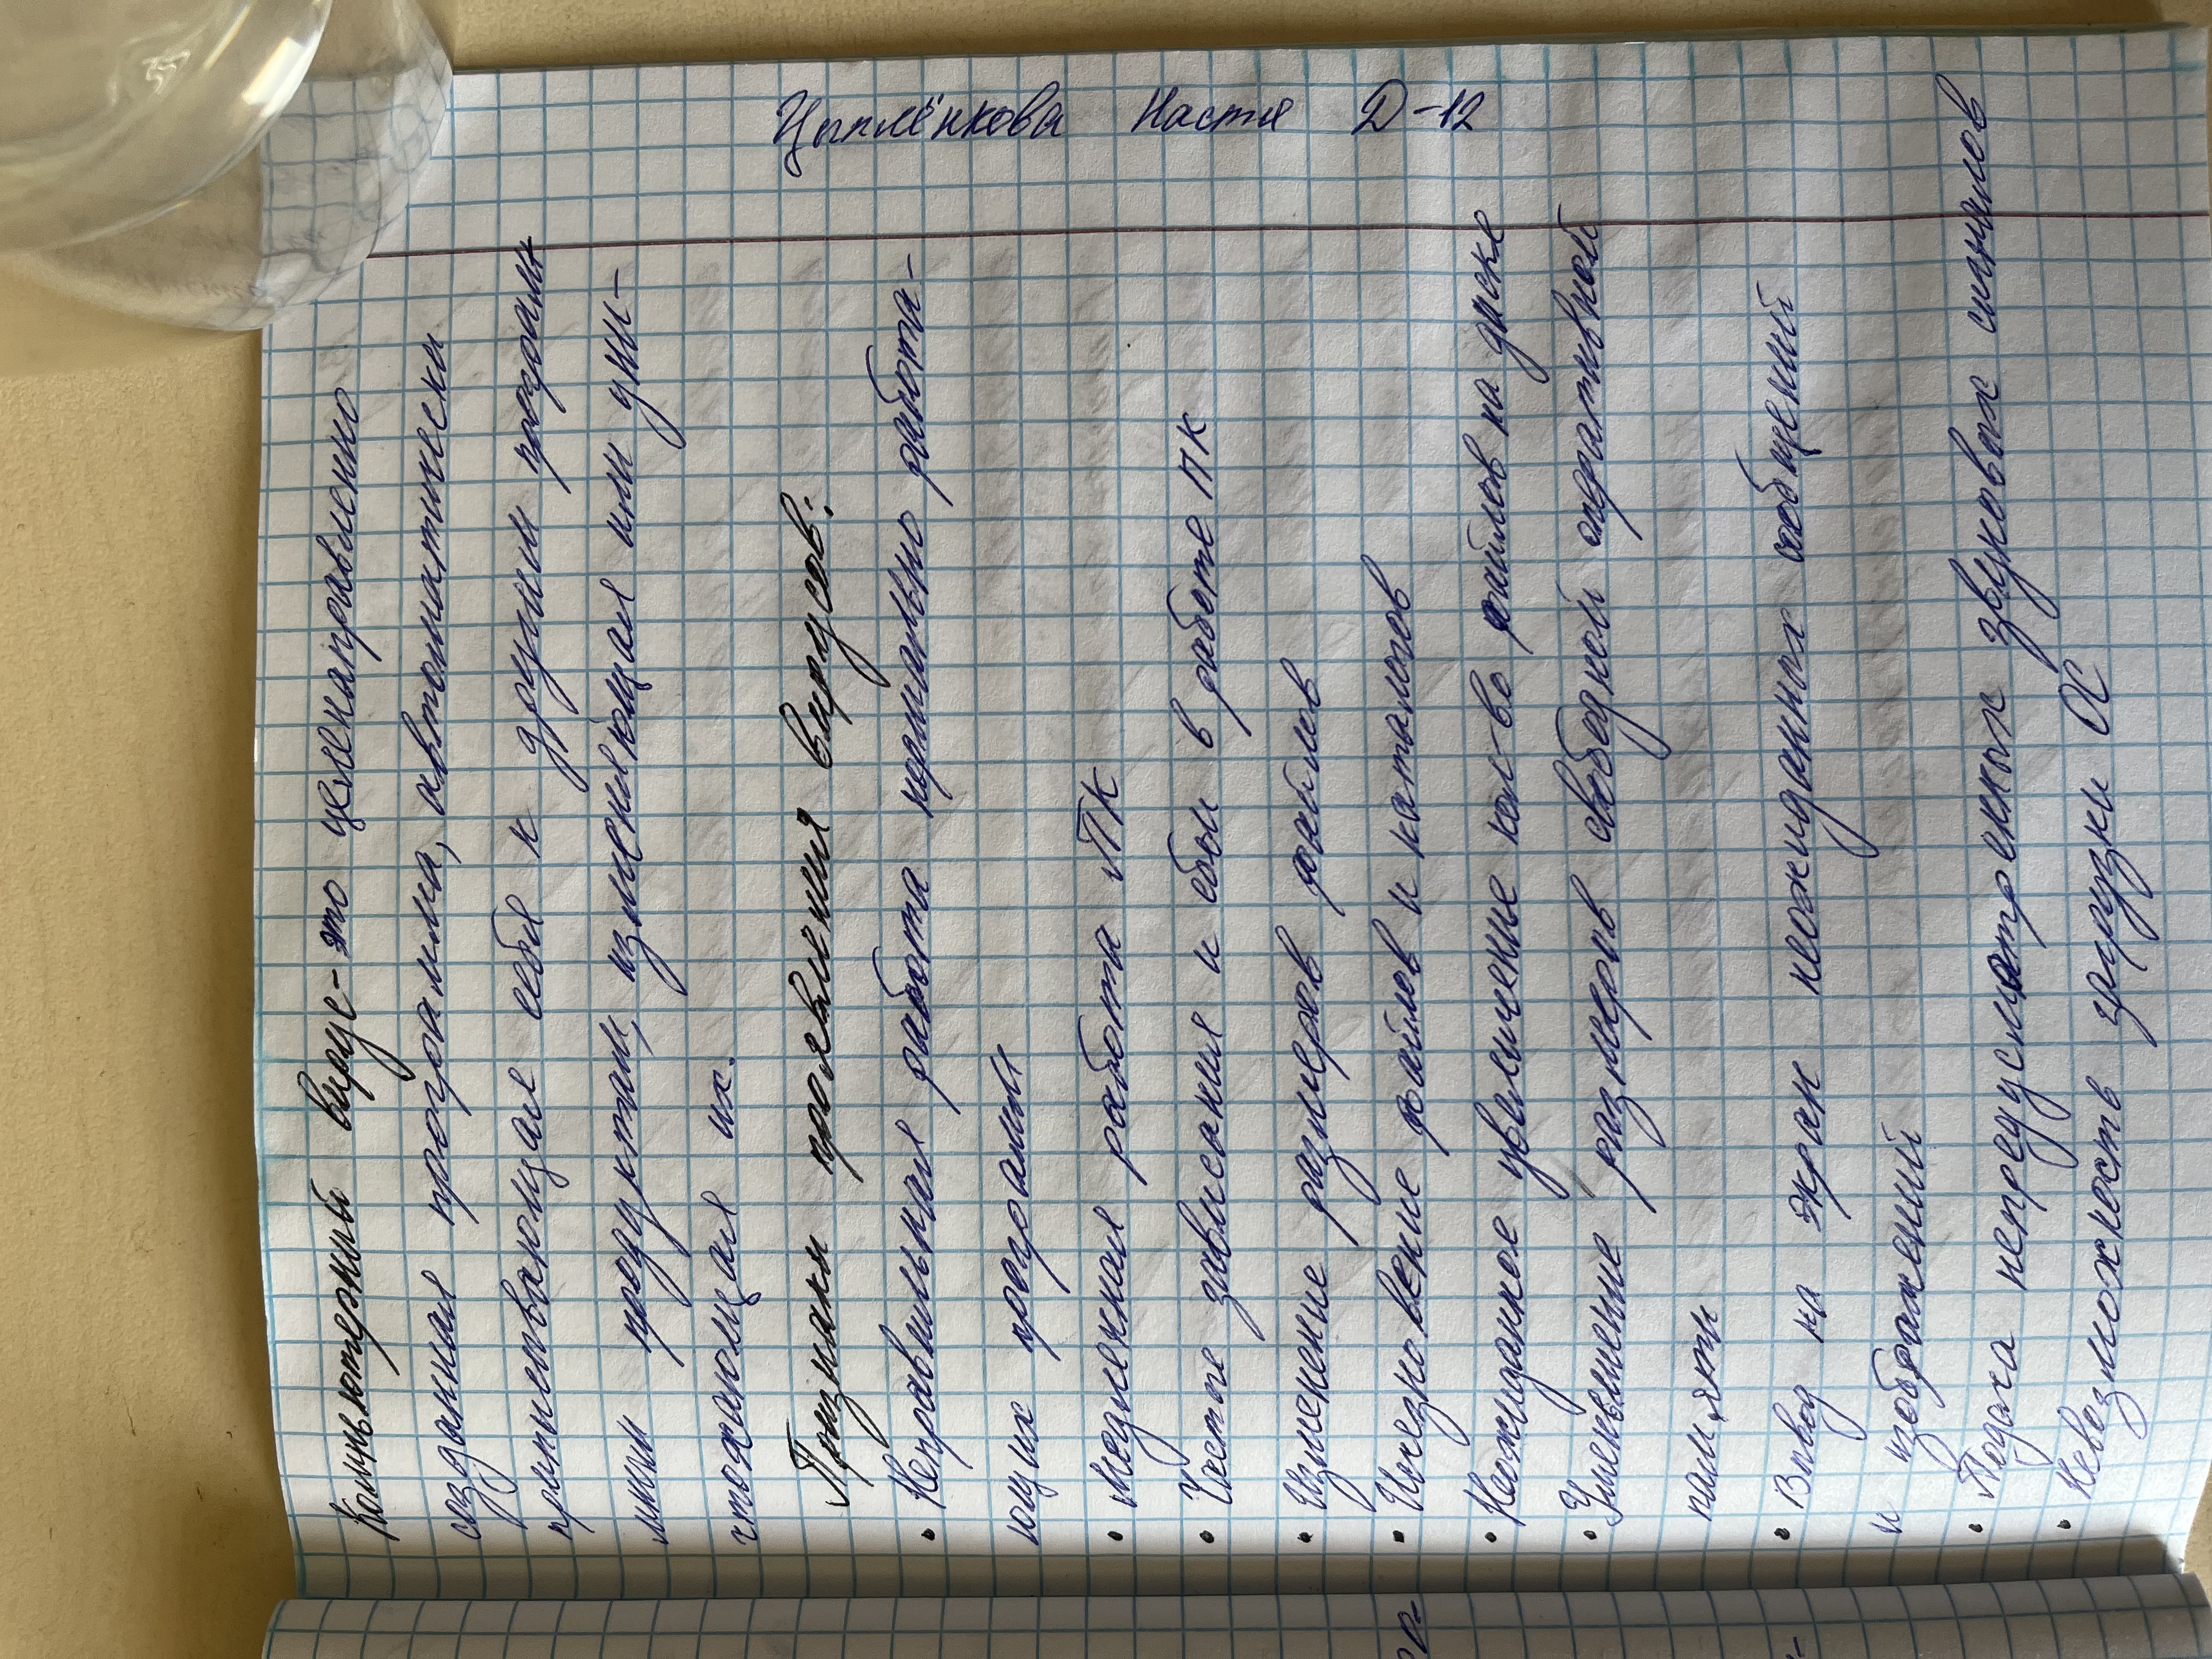 Компьютерный вирус - это целенаправленно
созданная программа, автоматически
приписывающая себя к другим програм
мным продуктам, изменяющая или уни-
чтожающая их.
Признаки проявления вирусов:
• Неправильная работа нормально работа-
ющих программ
• Медленная работа ПК
• Частые зависания и сбои в работе ПК
• Изменение размеров файлов
• Исчезновение файлов и каталогов
• Неожиданное увеличение кол-во файлов на диске
• Уменьшение размеров свободной оперативной
памяти
• Вывод на экран неожиданных сообщений
и изображений
• Подача непредусмотренных звуковых сигналов
• Невозможность загрузки ОС
Цыплёнкова Настя Д-12